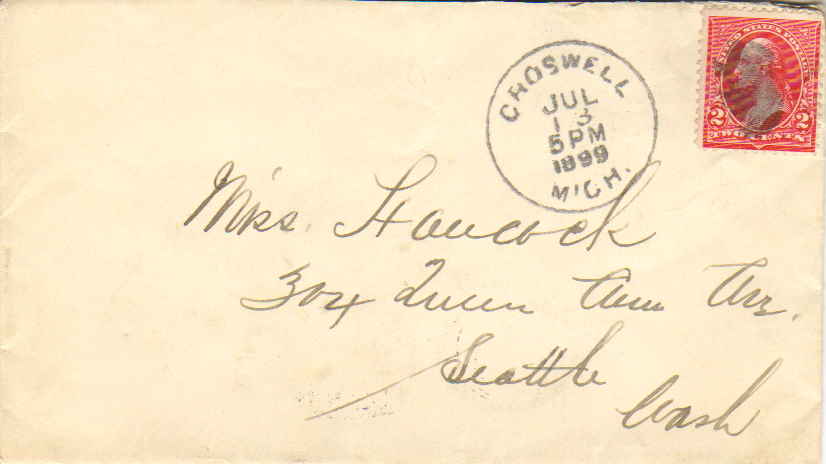 CROSWELL
JUL
13
5PM
1899
MICH.
UNITED STATES POSTAGE
2 2
TWO CENTS
Miss. Hancock
304 Queen Ann Ave.
Seattle
Wash